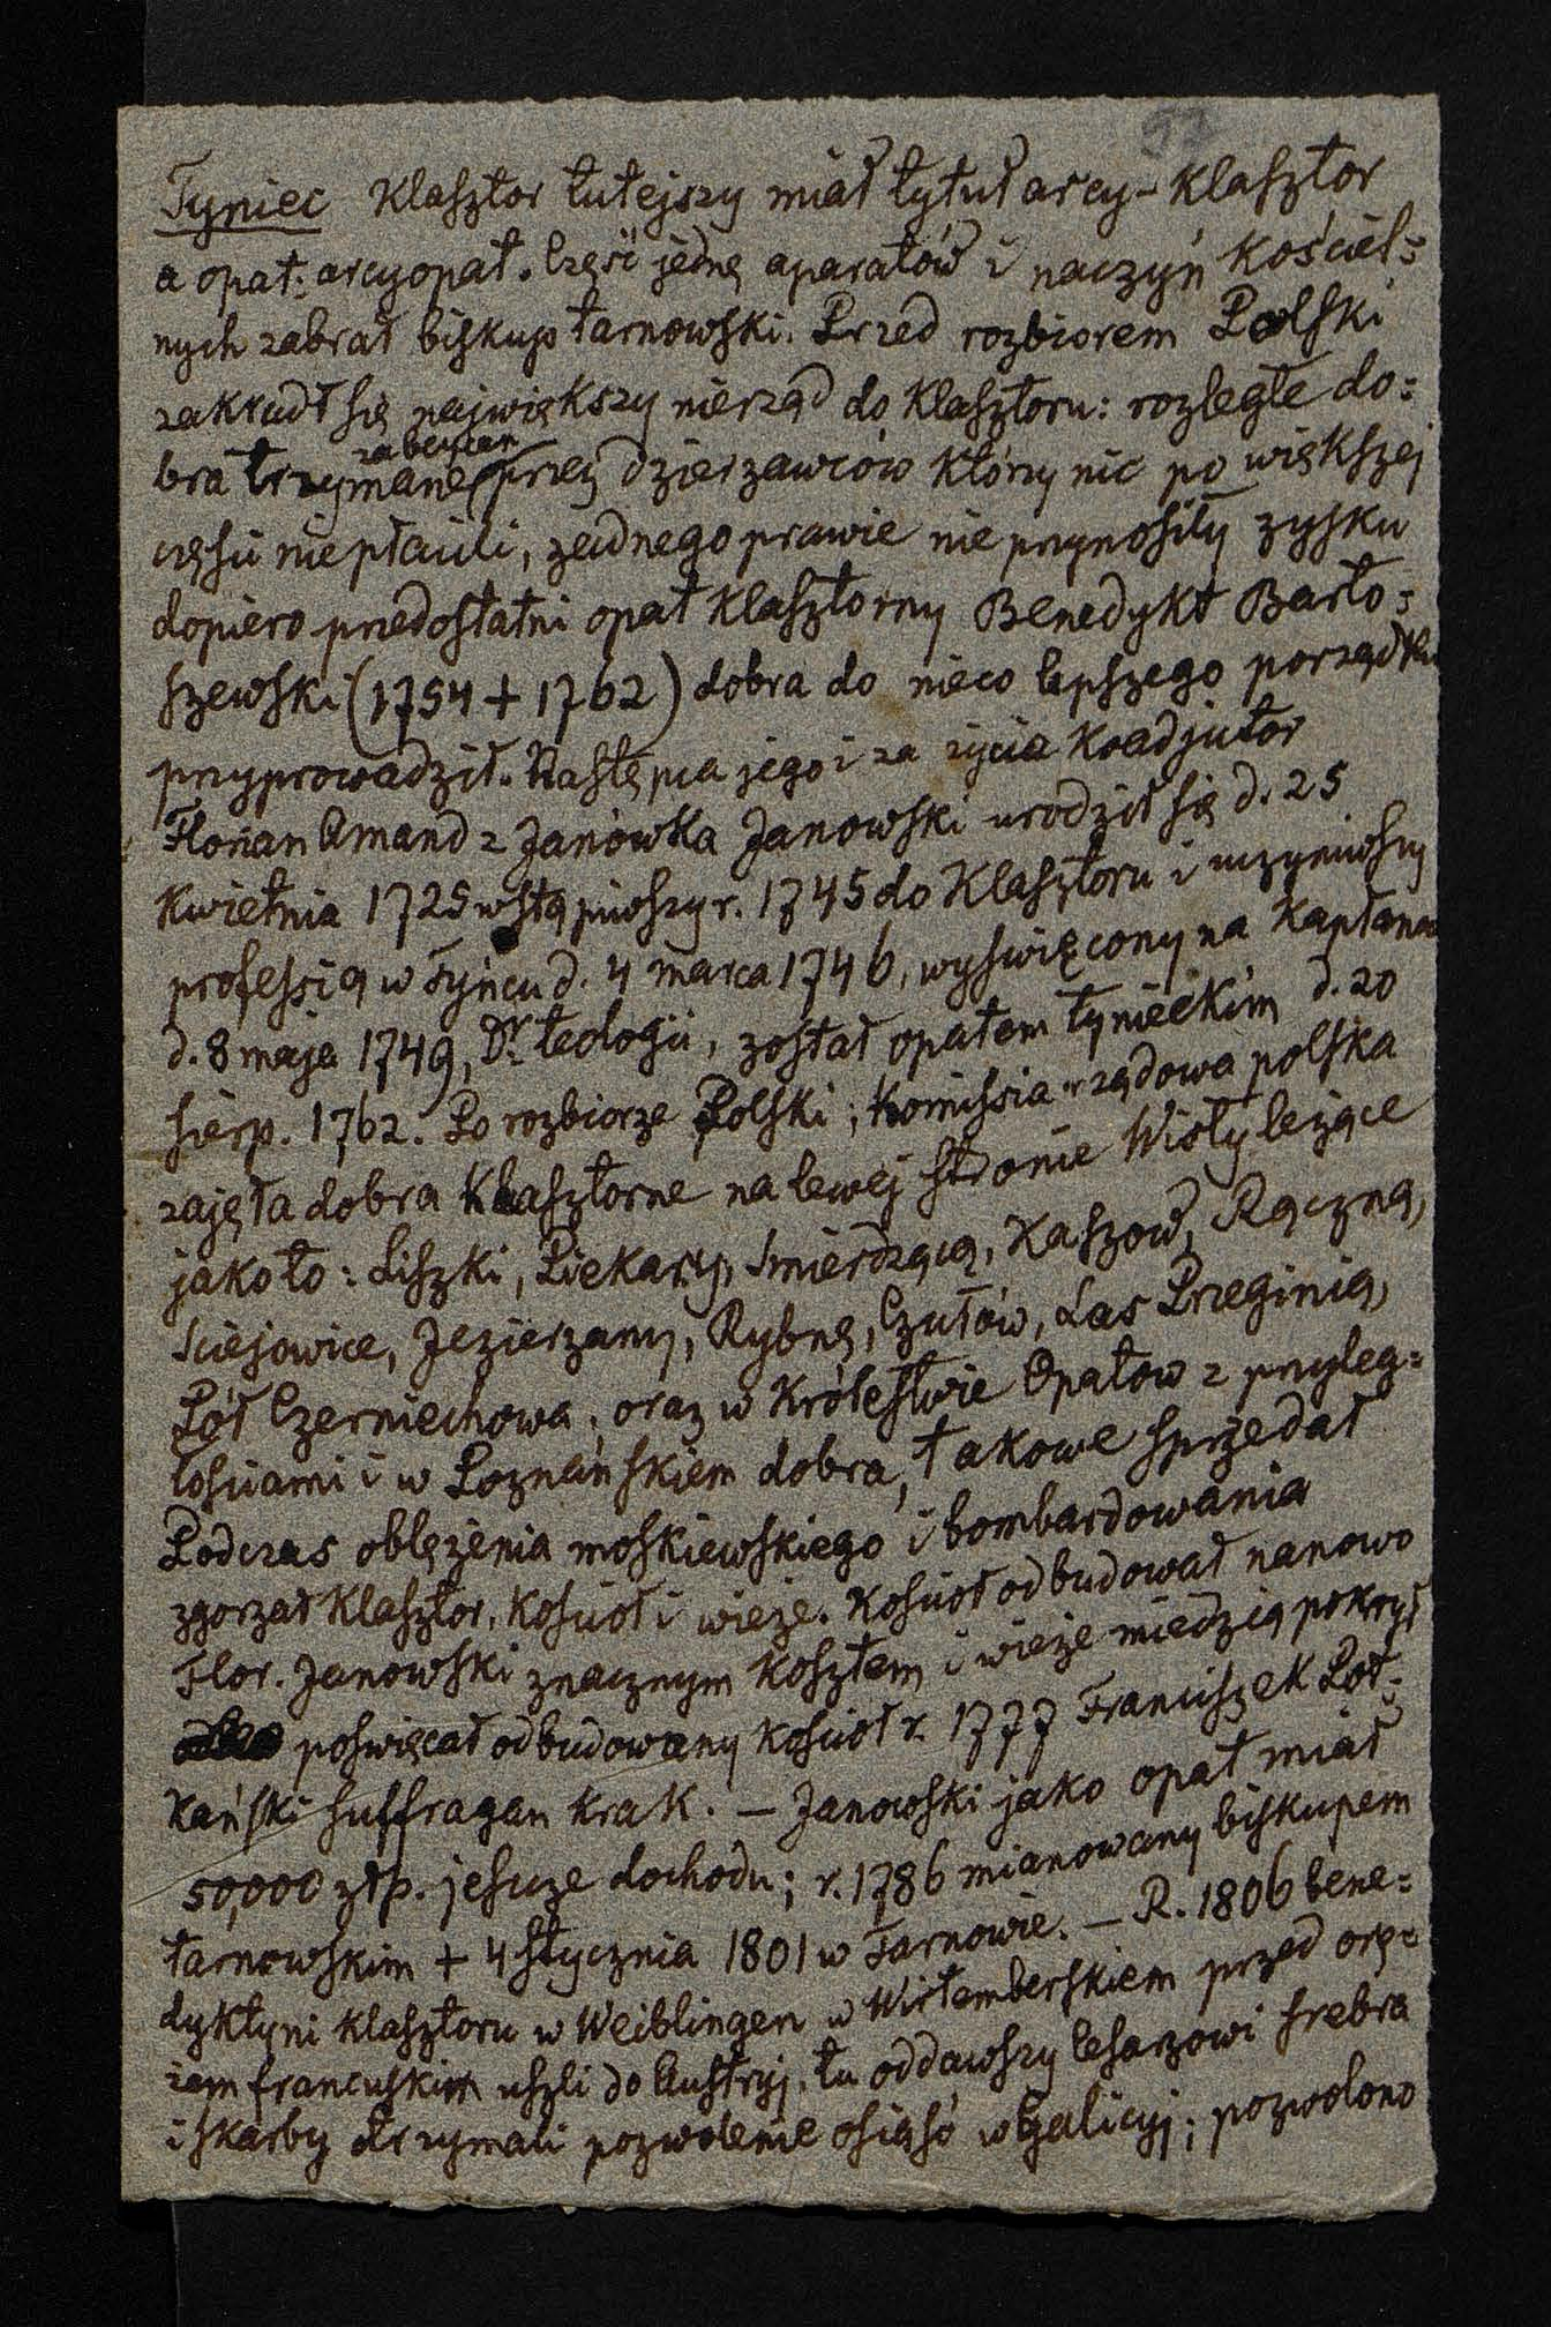 57
Tyniec Klasztor tutejszy miał tytuł arcy-klasztor
a opat: arcyopat. Część jedną aparatów i naczyń kościel=
nych zabrał biskup tarnowski. Przed rozbiorem Polski
zakradł się największy nierząd do klasztoru: rozległe do=
bra trzymane przez dzierzawców którzy nic po większej
części nie płacili, zadnego prawie nie przynosiły zysku
dopiero przedostatni opat klasztorny Benedykt Barto=
szewski (1754 + 1762) dobra do nieco lepszego porządku
przyprowadził. Następca jego i za życia koadjutor
Florian Amand z Janówka Janowski urodził się d. 25
kwietnia 1725 wstąpiwszy r. 1745 do klasztoru i uczyniwszy
professią w Tyńcu d. 4 marca 1746, wyświęcony na kapłana
d. 8 maja 1749, Dr. teologii, został opatem tynieckim d. 20
sierp. 1762. Po rozbiorze Polski; komissia rządowa polska
zajęła dobra klasztorne na lewej stronie Wisły leżące
jako to: Liszki, Piekary, Smierdzącą, Kaszow, Rączną,
Sciejowice, Jezierzany, Rybnę, Czułów, Las Przeginią,
Pół Czerniechowa, oraz w Królestwie Opatow z przyleg=
łościami i w Poznańskiem dobra, takowe sprzedał
Podczas oblężenia moskiewskiego i bombardowania
zgorzał klasztor, kościoł i wieże. Kościoł odbudował nanowo
Flor. Janowski znacznym kosztem i wieże miedzią pokrył
poświęcał odbudowany kościoł r. 1777 Franciszek Pod=
kański suffragan krak. — Janowski jako opat miał
50,000 złp. jeszcze dochodu; r. 1786 mianowany biskupem
tarnowskim + 4 stycznia 1801 w Tarnowie. — R. 1806 bene=
dyktyni klasztoru w Weiblingen w Wirtemberskiem przed orę=
żem francuskim uszli do Austryj, tu oddawszy Cesarzowi srebra
i skarby otrzymali pozwolenie osiąść w Galicyj; pozwolono